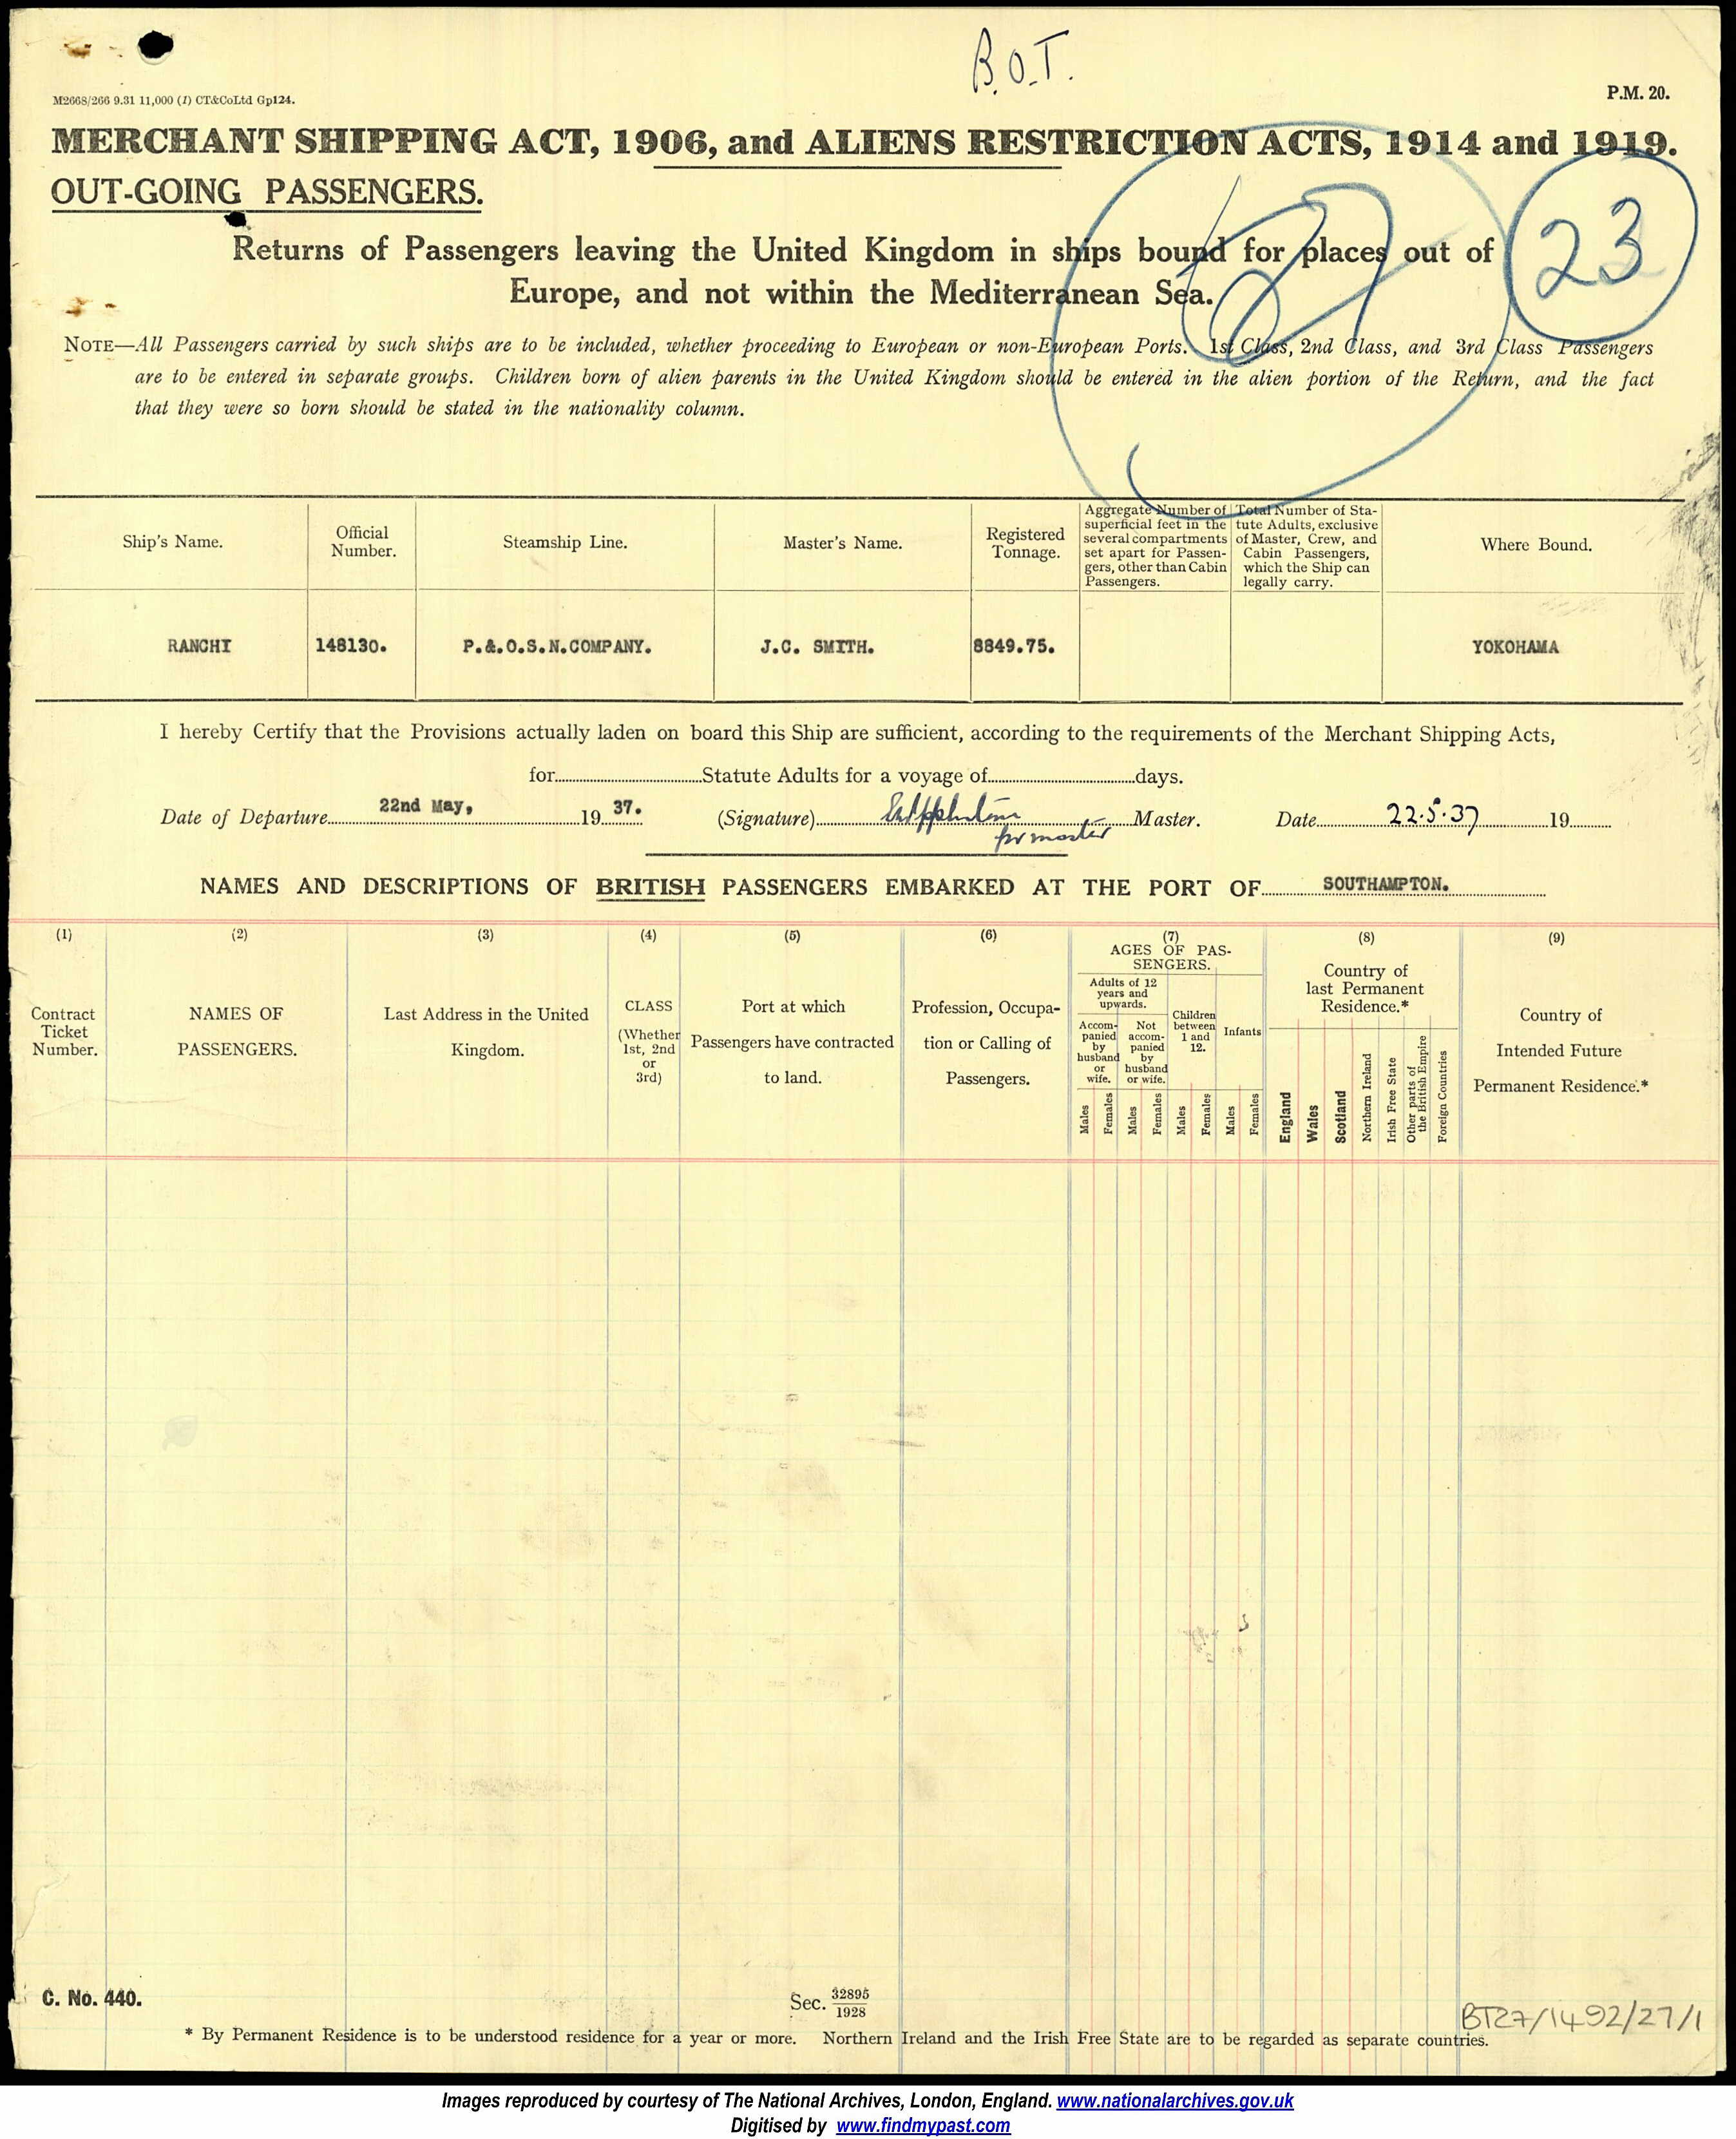 B.O.T.
M2668/266 9.31 11,000 (1) CT&CoLtd Gp124.
P.M. 20.
MERCHANT SHIPPING ACT, 1906, and ALIENS RESTRICTION ACTS, 1914 and 1919.
OUT-GOING PASSENGERS.
23
Returns of Passengers leaving the United Kingdom in ships bound for places out of
Europe, and not within the Mediterranean Sea.
NOTE—All Passengers carried by such ships are to be included, whether proceeding to European or non-European Ports. 1st Class, 2nd Class, and 3rd Class Passengers
are to be entered in separate groups. Children born of alien parents in the United Kingdom should be entered in the alien portion of the Return, and the fact
that they were so born should be stated in the nationality column.
Ship's Name.
Official Number.
Steamship Line.
Master's Name.
Registered Tonnage.
Aggregate Number of superficial feet in the several compartments set apart for Passengers, other than Cabin Passengers.
Total Number of Statute Adults, exclusive of Master, Crew, and Cabin Passengers, which the Ship can legally carry.
Where Bound.
RANCHI 148130. P.&.O.S.N.COMPANY. J.C. SMITH. 8849.75. YOKOHAMA
I hereby Certify that the Provisions actually laden on board this Ship are sufficient, according to the requirements of the Merchant Shipping Acts,
for Statute Adults for a voyage of days.
Date of Departure 22nd May, 19 37. (Signature) Master. Date 22.5.37 19
for master
NAMES AND DESCRIPTIONS OF BRITISH PASSENGERS EMBARKED AT THE PORT OF SOUTHAMPTON.
(1) (2) (3) (4) (5) (6) (7) (8) (9)
Contract Ticket Number.
NAMES OF PASSENGERS.
Last Address in the United Kingdom.
CLASS (Whether 1st, 2nd or 3rd)
Port at which Passengers have contracted to land.
Profession, Occupation or Calling of Passengers.
AGES OF PASSENGERS.
Adults of 12 years and upwards.
Accompanied by husband or wife.
Not accompanied by husband or wife.
Children between 1 and 12.
Infants
Males Females Males Females Males Females Males Females
Country of last Permanent Residence.*
England
Wales
Scotland
Northern Ireland
Irish Free State
Other parts of the British Empire
Foreign Countries
Country of Intended Future Permanent Residence.*
C. No. 440.
Sec. 32895/1928
BT27/1492/27/1
* By Permanent Residence is to be understood residence for a year or more. Northern Ireland and the Irish Free State are to be regarded as separate countries.
Images reproduced by courtesy of The National Archives, London, England. www.nationalarchives.gov.uk
Digitised by www.findmypast.com